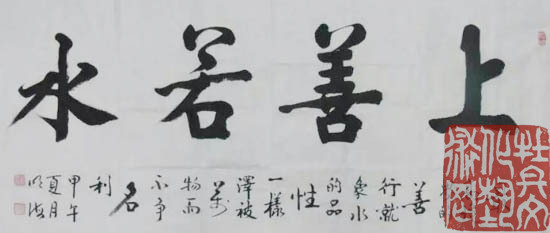 上善若水
善
行就
象水
的品
性
一樣
澤被
萬
物而
不争
名
利
甲午
夏月